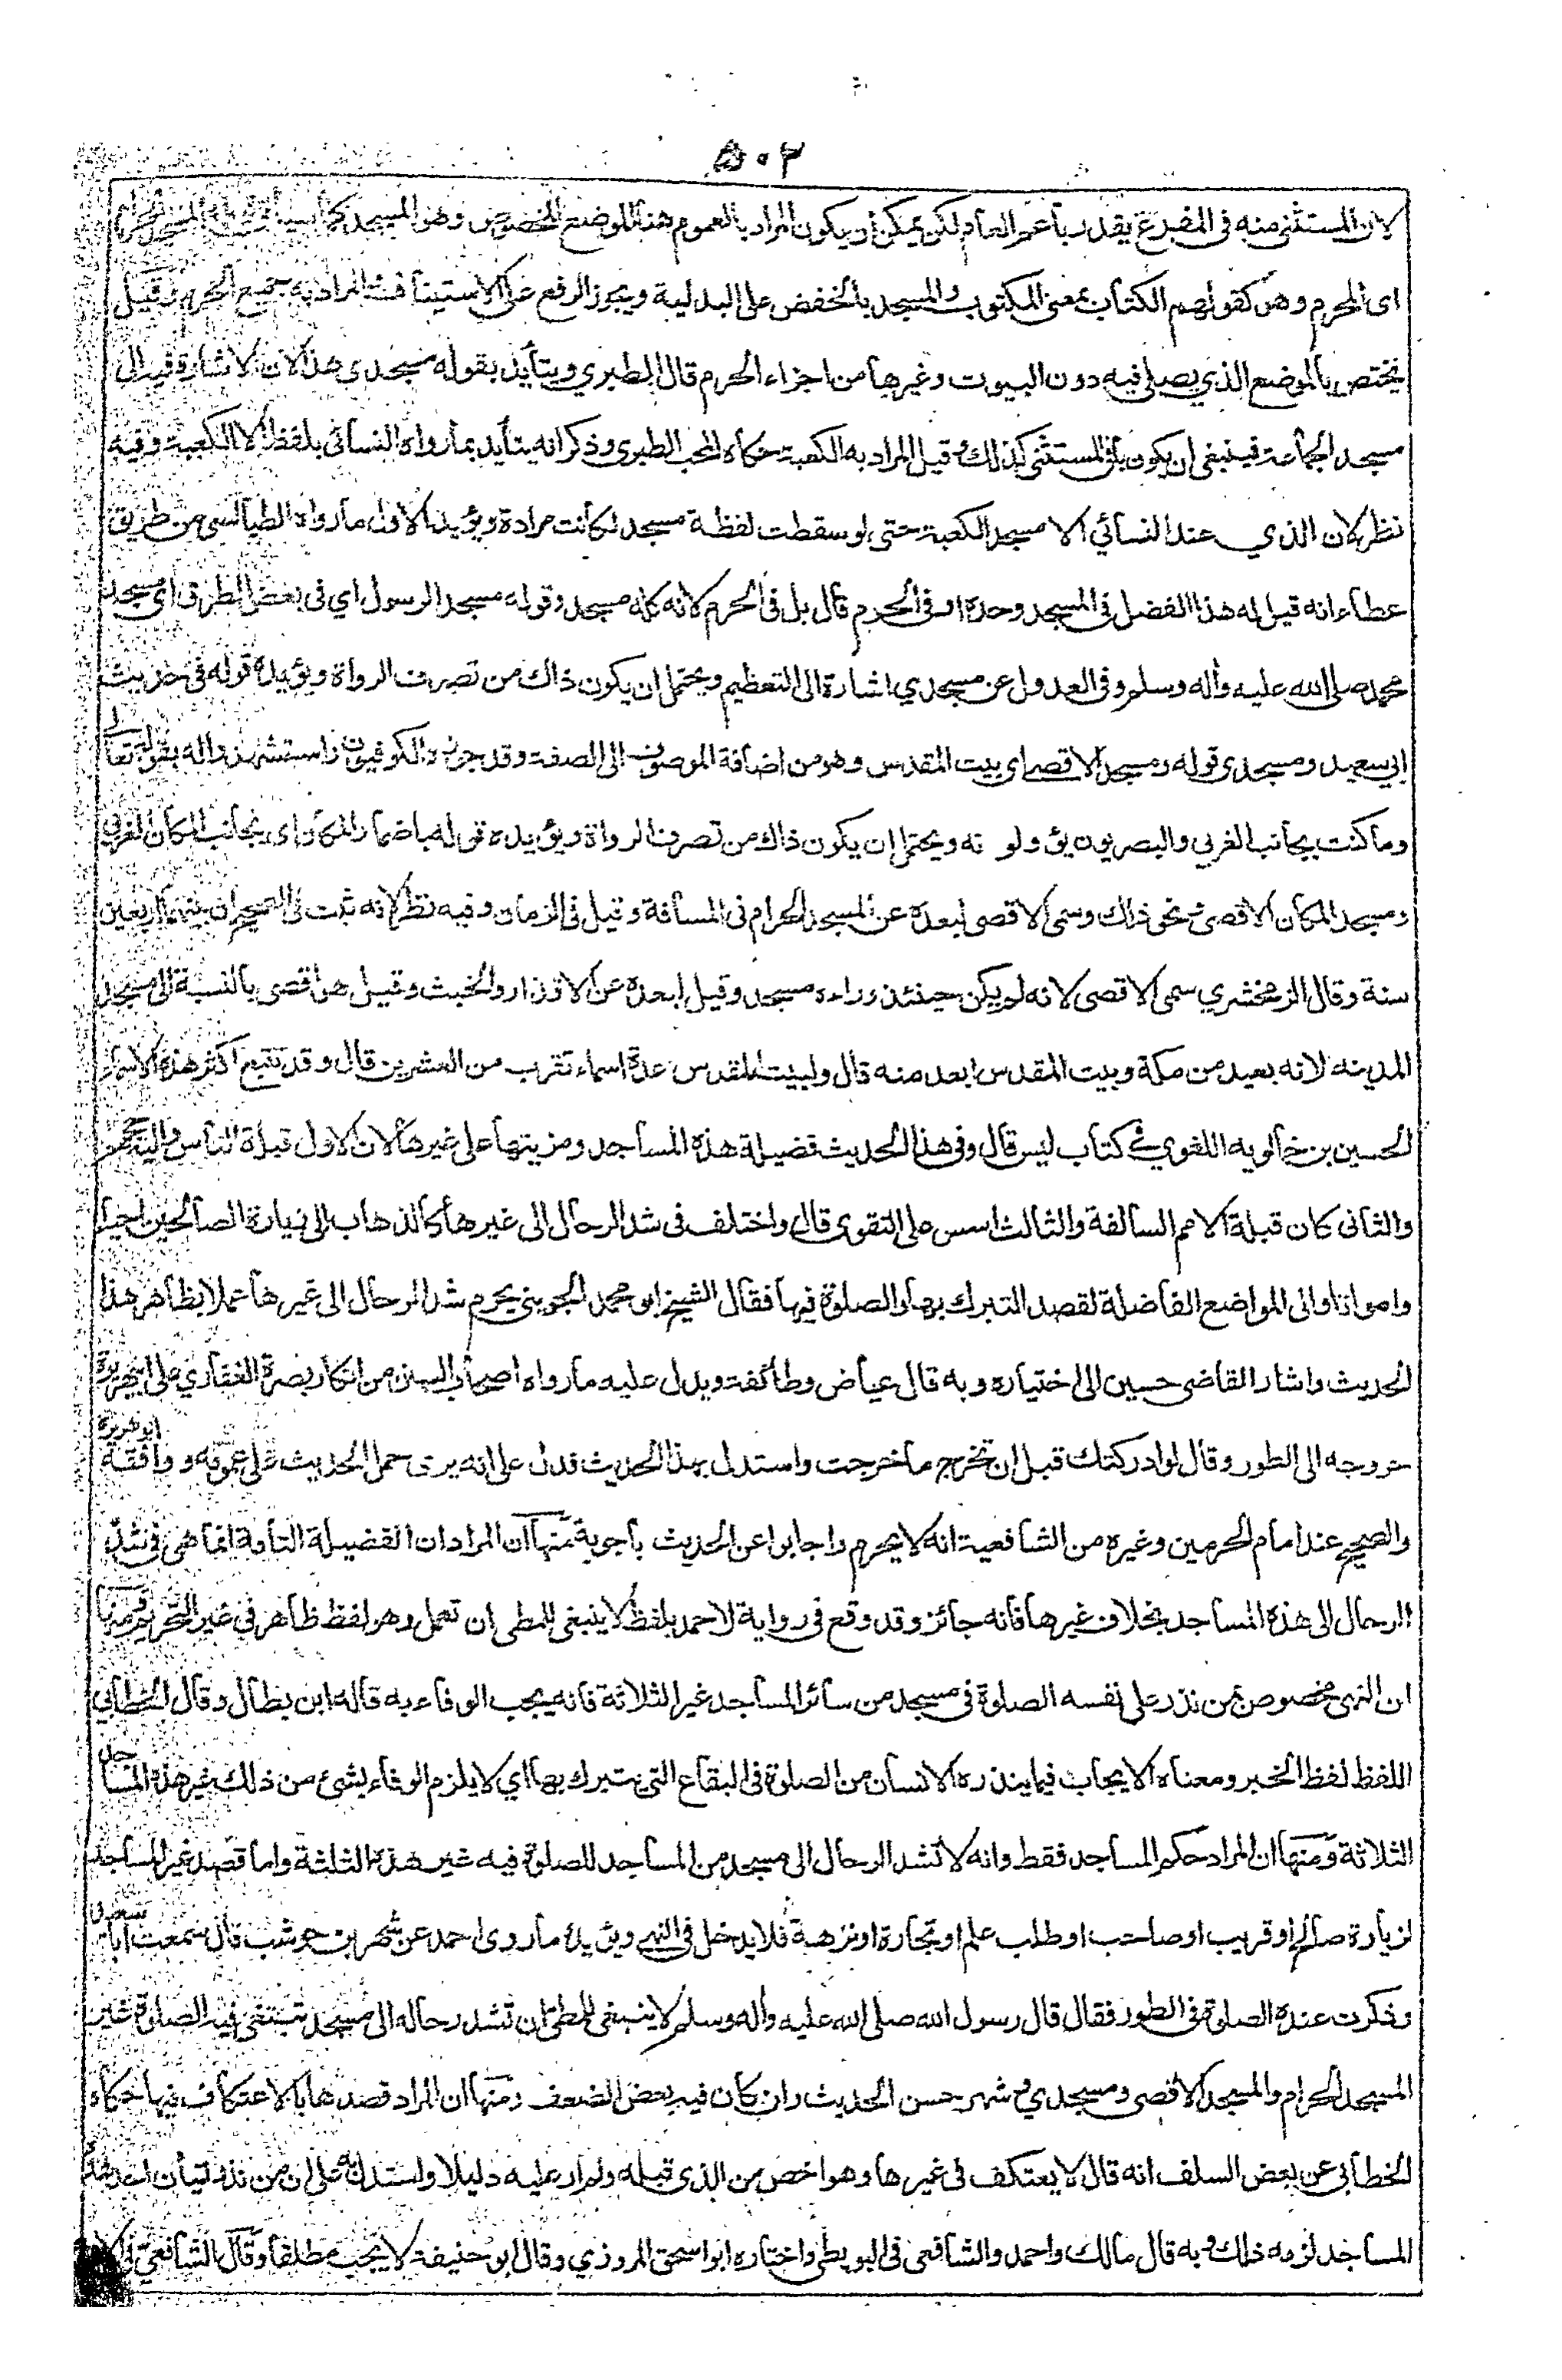 ٥٠٢
لان المستثنى منه في المفرغ يقدر باعم العام لكن يمكن أن يكون المراد بالعموم هنا الموضع المخصوص وهو المسجد
اى المحرم وهو كقولهم الكتاب بمعنى المكتوب والمسجد بالخفض على البدلية ويجوز الرفع على الاستيناف والمراد به جميع الحرم وقيل
يختص بالموضع الذي يصلى فيه دون البيوت وغيرها من اجزاء الحرم قال الطبري ويتأيد بقوله مسجدى هذا لان الاشارة فيه الى
مسجد الجماعة فينبغى ان يكون المستثنى كذلك وقيل المراد به الكعبة حكاه المحب الطبرى وذكر انه يتأيد بمارواه النسائى بلفظ الا الكعبة وفيه
نظر لان الذي عند النسائي الا مسجد الكعبة حتى لو سقطت لفظة مسجد لكانت مرادة ويؤيد الاول مارواه الطيالسى من طريق
عطاء انه قيل له هذا الفضل فى المسجد وحده او فى الحرم قال بل فى الحرم لانه كله مسجد وقوله مسجد الرسول اي فى بعض الطرق اى مسجد
محمد صلى الله عليه وأله وسلم وفى العدول عن مسجدي اشارة الى التعظيم ويحتمل ان يكون ذاك من تصرف الرواة ويؤيده قوله فى حديث
ابي سعيد ومسجدى قوله ومسجد الاقصى اى بيت المقدس وهو من اضافة الموصوف الى الصفة وقد جوزه الكوفيون واستشهدوا له بقوله تعالى
وما كنت بجانب الغربي والبصريون يؤولونه ويحتمل ان يكون ذاك من تصرف الرواة ويؤيده قوله باضمار المكان اى بجانب المكان الغربي
ومسجد المكان الاقصى ونحو ذاك وسمى الاقصى لبعده عن المسجد الحرام فى المسافة وقيل فى الزمان وفيه نظر لانه ثبت فى الصحيح ان بينهما اربعين
سنة وقال الزمخشري سمى الاقصى لانه لم يكن حينئذ وراءه مسجد وقيل لبعده عن الاقذار والخبث وقيل هو اقصى بالنسبة الى مسجد
المدينه لانه بعيد من مكة وبيت المقدس ابعد منه قال ولبيت المقدس عدة اسماء تقرب من العشرين قال وقد تتبع اكثر هذه الاسماء
الحسين بن خالويه اللغوي فى كتاب ليس قال وفى هذا الحديث فضيلة هذه المساجد ومزيتها على غيرها لان الاول قبلة الناس واليه حجهم
والثانى كان قبلة الامم السالفة والثالث اسس على التقوى قال واختلف فى شد الرحال الى غيرها كالذهاب الى زيارة الصالحين احياء
وامواتا والى المواضع الفاضلة لقصد التبرك بها والصلوة فيها فقال الشيخ ابو محمد الجوينى يحرم شد الرحال الى غيرها عملا بظاهر هذا
الحديث واشار القاضى حسين الى اختياره وبه قال عياض وطائفة ويدل عليه مارواه اصحاب السنن من انكار بصرة الغفاري على ابى هريرة
خروجه الى الطور وقال لو ادركتك قبل ان تخرج ماخرجت واستدل بهذا الحديث فدل على انه يرى حمل الحديث على عمومه ووافقه ابو هريرة
والصحيح عند امام الحرمين وغيره من الشافعية انه لا يحرم واجابوا عن الحديث بأجوبة منها ان المراد ان الفضيلة التامة انما هى فى شد
الرحال الى هذه المساجد بخلاف غيرها فانه جائز وقد وقع فى رواية لاحمد بلفظ لا ينبغى للمطى ان تعمل وهو لفظ ظاهر فى غير التحريم ومنها
ان النهى مخصوص بمن نذر على نفسه الصلوة فى مسجد من سائر المساجد غير الثلاثة فانه يجب الوفاء به قاله ابن بطال وقال الخطابي
اللفظ لفظ الخبر ومعناه الايجاب فيما ينذره الانسان من الصلوة فى البقاع التى يتبرك بها اي لا يلزم الوفاء بشئ من ذلك غير هذه المساجد
الثلاثة ومنها ان المراد حكم المساجد فقط وانه لا تشد الرحال الى مسجد من المساجد للصلوة فيه غير هذه الثلثة واما قصد غير المساجد
لزيارة صالح او قريب او صاحب او طلب علم او تجارة او نزهة فلا يدخل فى النهى ويؤيده ماروى احمد عن شهر بن حوشب قال سمعت ابا سعيد
وذكرت عنده الصلوة فى الطور فقال قال رسول الله صلى الله عليه وأله وسلم لا ينبغى للمطى ان تشد رحاله الى مسجد تبتغى فيه الصلوة غير
المسجد الحرام والمسجد الاقصى ومسجدي وشهر حسن الحديث وان كان فيه بعض الضعف ومنها ان المراد قصدها بالاعتكاف فيها حكاه
الخطابى عن بعض السلف انه قال لا يعتكف فى غيرها وهو اخص من الذى قبله ولم ار عليه دليلا واستدل به على ان من نذر اتيان احد هذه
المساجد لزمه ذلك وبه قال مالك واحمد والشافعى فى البويطى واختاره ابو اسحق المروزي وقال ابو حنيفة لا يجب مطلقا وقال الشافعى فى